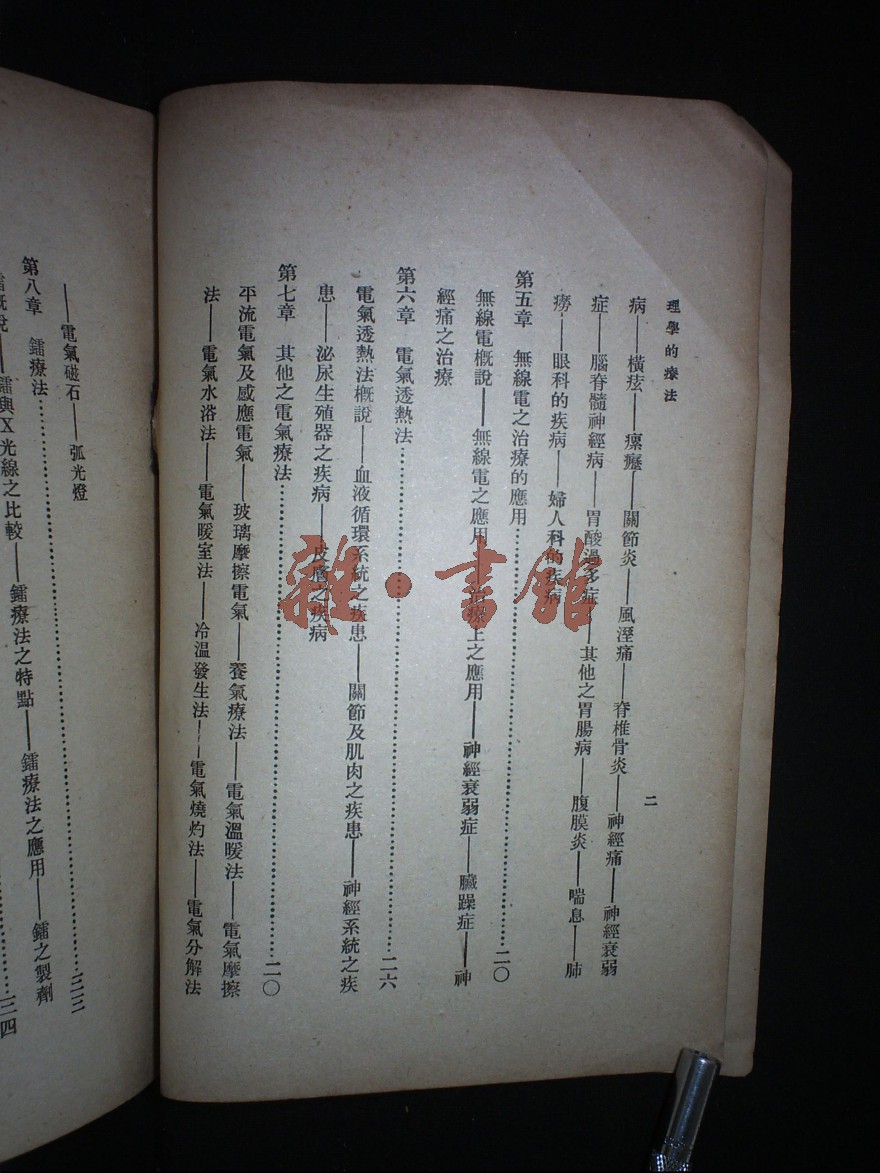 理學的療法
二
病——橫痃——瘰癧——關節炎——風溼痛——脊椎骨炎——神經痛——神經衰弱
症——腦脊髓神經病——胃酸過多症——其他之胃腸病——腹膜炎——喘息——肺
癆——眼科的疾病——婦人科的疾病
第五章 無線電之治療的應用……二〇
無線電概說——無線電之應用——治療上之應用——神經衰弱症——臟躁症——神
經痛之治療
第六章 電氣透熱法……二六
電氣透熱法概說——血液循環系統之疾患——關節及肌肉之疾患——神經系統之疾
患——泌尿生殖器之疾病——皮膚之疾病
第七章 其他之電氣療法……二〇
平流電氣及感應電氣——玻璃摩擦電氣——養氣療法——電氣溫暖法——電氣摩擦
法——電氣水浴法——電氣暖室法——冷溫發生法——電氣燒灼法——電氣分解法
——電氣磁石——弧光燈
第八章 鐳療法……三三
鐳概說——鐳與X光線之比較——鐳療法之特點——鐳療法之應用——鐳之製劑
……三四
雜·書館